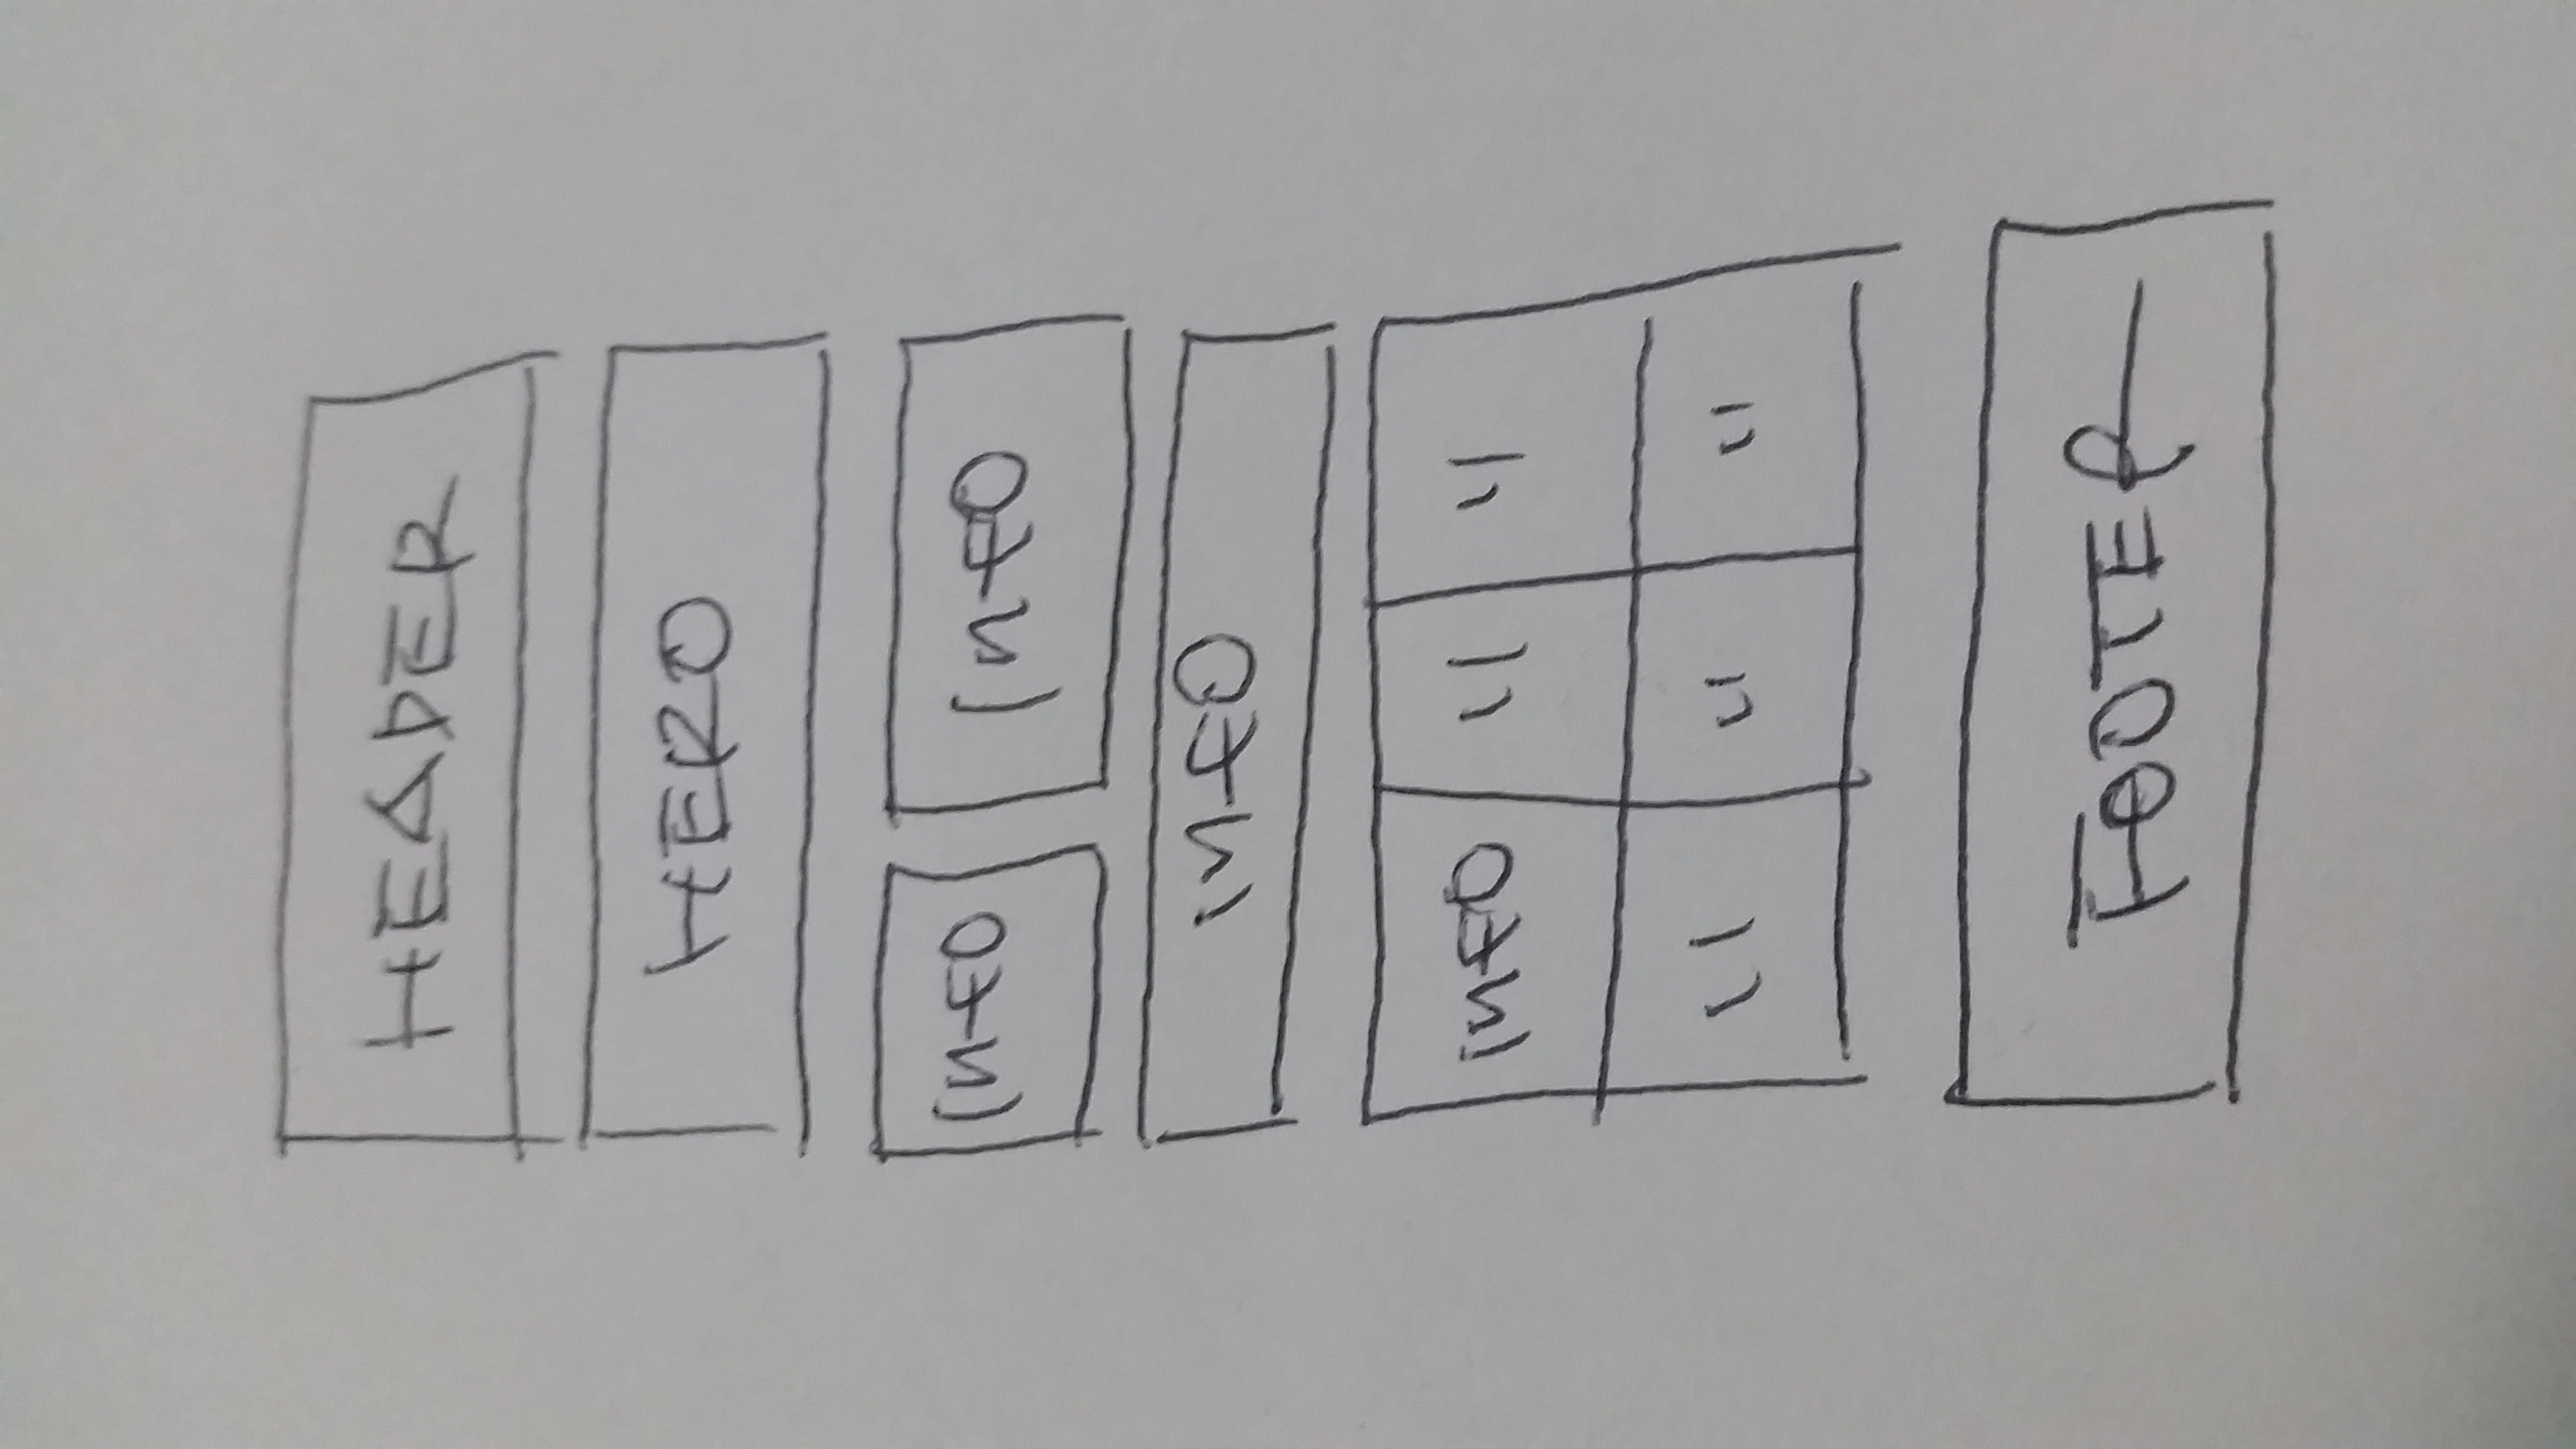 HEADER
HERO
INFO INFO
INFO
INFO " "
" " "
FOOTER